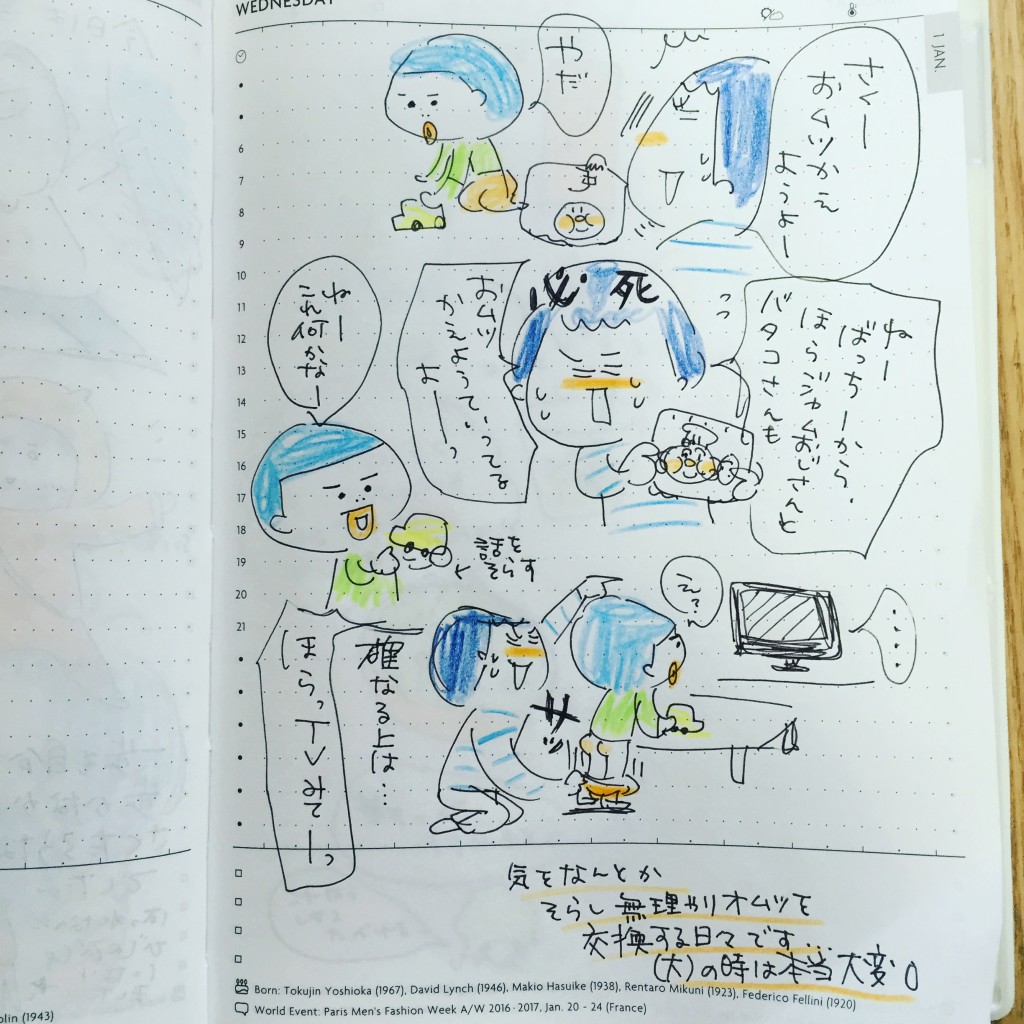 WEDNESDAY
1 JAN.
さくー
おムツかえ
ようよー
やだ
ねー
ばっちーから、
ほらジャムおじさんと
バタコさんも
必死
おムツ
かえようっていってる
よーっ
ねー
これ何かなー
話を
そらす
え?
‥‥
確なる上は…
ほらっTVみてーっ
サッ
6
7
8
9
10
11
12
13
14
15
16
17
18
19
20
21
気をなんとか
そらし無理やりオムツを
交換する日々です…
(大)の時は本当大変
Born: Tokujin Yoshioka (1967), David Lynch (1946), Makio Hasuike (1938), Rentaro Mikuni (1923), Federico Fellini (1920)
World Event: Paris Men's Fashion Week A/W 2016-2017, Jan. 20 - 24 (France)
olin (1943)